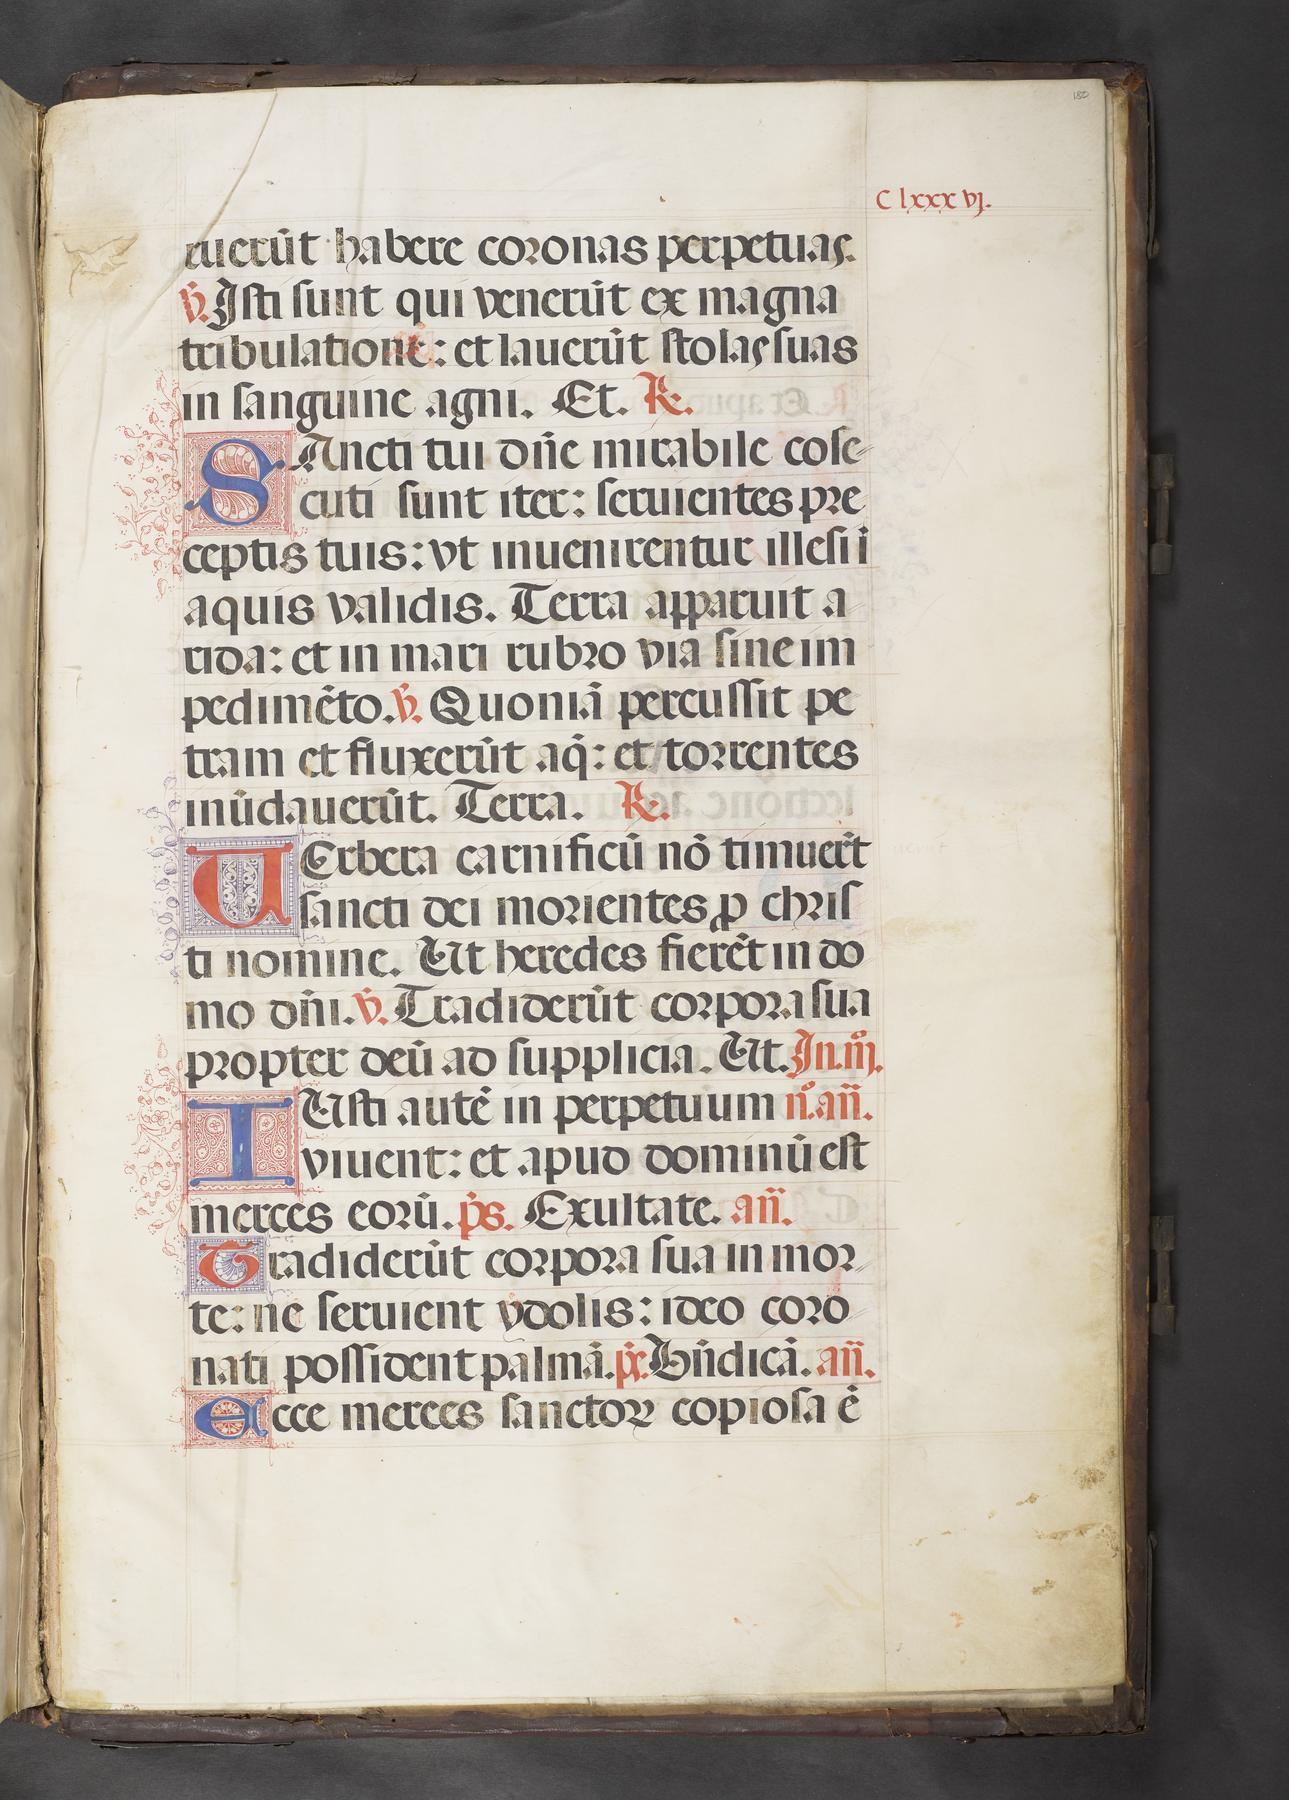 180
C lxxx vj.
ruerūt habere coronas perpetuas.
℣. Isti sunt qui venerūt ex magna
tribulatione: et lauerūt stolas suas
in sanguine agni. Et. ℟.
SAncti tui dn̄e mirabile cōse-
cuti sunt iter: seruientes pre
ceptis tuis: vt inuenirentur illesi ī
aquis validis. Terra apparuit a
rida: et in mari rubro via sine im
pedimēto. ℣. Quoniā percussit pe
tram et fluxerūt aq̄: et torrentes
inūdauerūt. Terra. ℟.
UErbera carnificū nō timuert̄
sancti dei morientes ꝓ chris
ti nomine. Ut heredes fierēt in do
mo dn̄i. ℣. Tradiderūt corpora sua
propter deū ad supplicia. Ut. In .iij.
IUsti autē in perpetuum n̊. an̄.
viuent: et apud dominū est
merces eorū. p̄s. Exultate. an̄.
Tradiderūt corpora sua in mor-
te: ne seruient ydolis: ideo coro
nati possident palmā. p̄s. Bn̄dicā. an̄.
Ecce merces sanctoꝝ copiosa ē